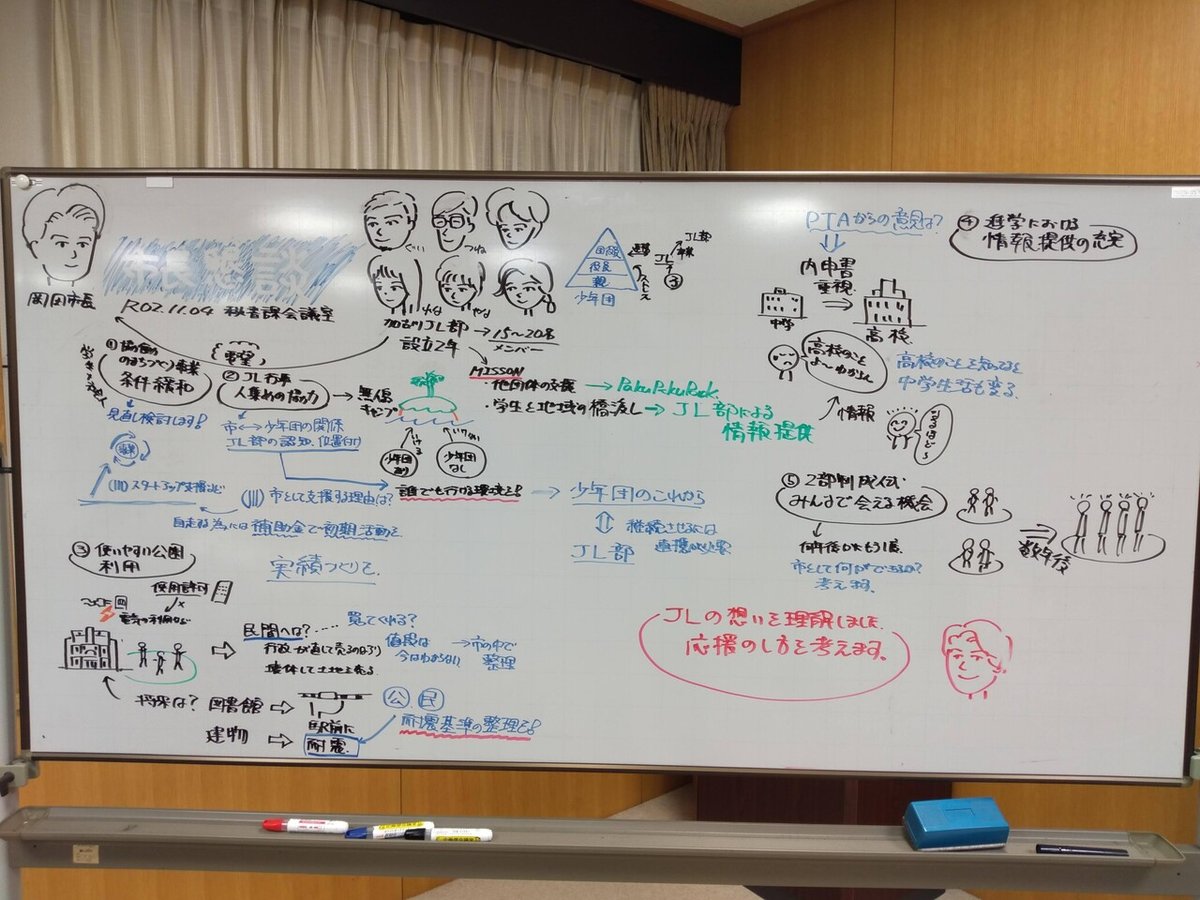 岡田市長
市民懇談
R02.11.04 秘書課会議室
加古川JL部 → 15～20名
メンバー
設立2年
要望
団長
役員
親
少年団
JL部
PTAからの意見は?
内申書
重視
中学
高校
高校のこと
よ～わからん
情報
なるほど～
高校のことを知ってると
中学生活も変る
④ 進学における
情報提供の充実
① 協働の
まちづくり事業
条件緩和
見直し検討します!
事業
スタートアップ支援など
② JL行事
人集めの協力
無人島
キャンプ
市 ↔ 少年団の関係
JL部の認知、位置付け
少年団
あり
いける
少年団
なし
いけない
誰でも行ける環境を!
市として支援する理由は?
自走する為には補助金で初期活動を
実績づくりを
MISSON
・他団体の交流 → PakuPakuPark
・学生と地域の橋渡し → JL部による
情報提供
少年団のこれから
JL部
継続させるには
連携が必要
⑤ 2部制成人式
みんなで会える機会
何年後かにもう1度
市として何ができるか?
考えます。
数年後
③ 使いやすい公園
利用
使用許可
電気の利用など
民間へは?
買てくれる?
行政が直して売るのはより
壊体して土地を売る
値段は
今はわからない
→市の中で
整理
将来は? 図書館
駅前に
建物
耐震
公 民
耐震基準の整理を!
JLの想いを理解しました
応援のし方を考えます。